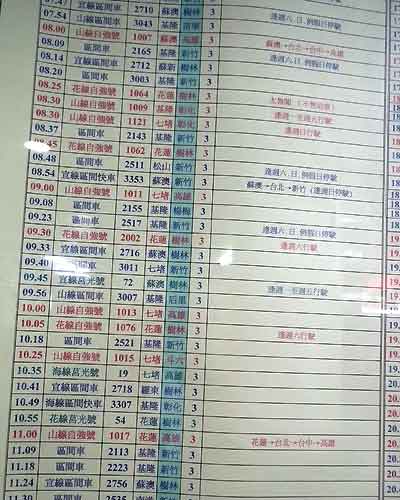 07.47 宜線區間車 2710 蘇澳 樹林 3
07.54 山線區間車 3043 基隆 苗栗 3 逢週六.日.例假日停駛
08.00 山線自強號 1007 蘇澳 高雄 3 蘇澳→台北→台中→高雄
08.09 區間車 2165 基隆 新竹 3 逢週六.日.例假日停駛
08.14 宜線區間車 2712 蘇新 樹林 3
08.20 區間車 3003 基隆 新竹 3
08.25 花線自強號 1064 花蓮 樹林 3
08.30 山線自強號 1009 基隆 彰化 3
08.30 山線自強號 1121 七堵 彰化 3 逢週一至週六行駛
08.37 區間車 2143 基隆 新竹 3 逢週日行駛
08.45 花線自強號 1062 花蓮 樹林 3
08.48 區間車 2511 松山 新竹 3 逢週六.日.例假日停駛
08.54 宜線區間快車 3353 蘇澳 新竹 3 蘇澳→台北→新竹(逢週日停駛)
09.00 山線自強號 1011 七堵 高雄 3
09.08 區間車 2155 基隆 楊梅 3
09.23 區間車 2517 基隆 新竹 3 逢週六.日.例假日停駛
09.30 花線自強號 2002 花蓮 樹林 3 逢週六行駛
09.33 宜線區間車 2716 蘇澳 樹林 3
09.40 區間車 3011 七堵 新竹 3
09.45 宜線莒光號 72 蘇澳 樹林 3 逢週一至週五行駛
09.56 山線區間車 3007 基隆 后里 3
10.00 山線自強號 1013 七堵 高雄 3
10.05 花線自強號 1076 花蓮 樹林 3 逢週六行駛
10.18 區間車 2521 基隆 新竹 3
10.25 山線自強號 1015 七堵 斗六 3
10.35 海線莒光號 19 七堵 高雄 3
10.41 宜線區間車 2718 羅東 樹林 3
10.49 海線區間快車 3307 基隆 彰化 3
10.55 花線莒光號 54 花蓮 樹林 3
11.00 山線自強號 1017 花蓮 高雄 3 花蓮→台北→台中→高雄
11.09 區間車 2113 基隆 新竹 3
11.18 區間車 2223 基隆 新竹 3
11.24 宜線區間車 2756 蘇澳 樹林 3
11.30 區間車 2535 新竹 3